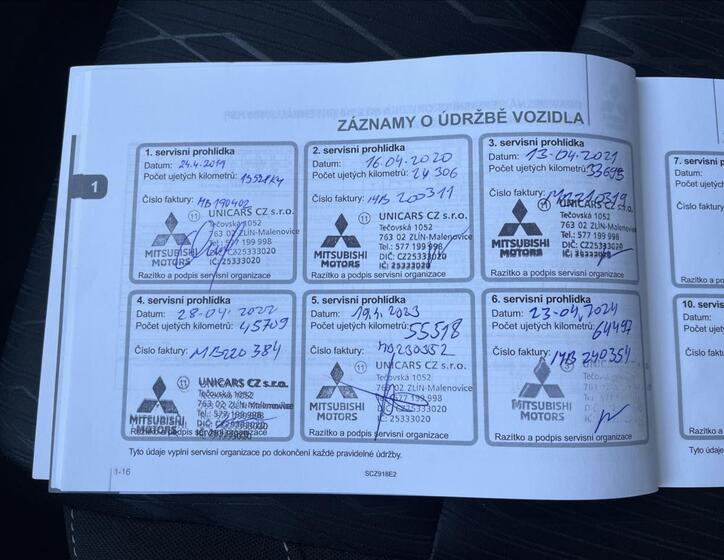 ZÁZNAMY O ÚDRŽBĚ VOZIDLA
1
1. servisní prohlídka
Datum: 24.4.2019
Počet ujetých kilometrů:
Číslo faktury: MB190402
11 UNICARS CZ s.r.o.
Tečovská 1052
763 02 ZLÍN-Malenovice
Tel.: 577 199 998
DIČ: CZ25333020
IČ: 25333020
MITSUBISHI
MOTORS
Razítko a podpis servisní organizace
2. servisní prohlídka
Datum: 16.04.2020
Počet ujetých kilometrů: 24 306
Číslo faktury: MB 200311
11 UNICARS CZ s.r.o.
Tečovská 1052
763 02 ZLÍN-Malenovice
Tel.: 577 199 998
DIČ: CZ25333020
IČ: 25333020
MITSUBISHI
MOTORS
Razítko a podpis servisní organizace
3. servisní prohlídka
Datum: 13-04.2021
Počet ujetých kilometrů: 33693
Číslo faktury:
UNICARS CZ s.r.o.
Tečovská 1052
763 02 ZLÍN-Malenovice
Tel.: 577 199 998
DIČ: CZ25333020
IČ: 25333020
MITSUBISHI
MOTORS
Razítko a podpis servisní organizace
4. servisní prohlídka
Datum: 28-04.2022
Počet ujetých kilometrů: 45709
Číslo faktury: MB220384
11 UNICARS CZ s.r.o.
Tečovská 1052
763 02 ZLÍN-Malenovice
Tel.: 577 199 998
MITSUBISHI
MOTORS
Razítko a podpis servisní organizace
5. servisní prohlídka
Datum: 19.4.2023
Počet ujetých kilometrů: 55518
Číslo faktury:
11 UNICARS CZ s.r.o.
Tečovská 1052
763 02 ZLÍN-Malenovice
Tel.: 577 199 998
DIČ: CZ25333020
IČ: 25333020
MITSUBISHI
MOTORS
Razítko a podpis servisní organizace
6. servisní prohlídka
Datum: 23-04.2024
Počet ujetých kilometrů: 64497
Číslo faktury: MB 240354
MITSUBISHI
MOTORS
Razítko a podpis servisní organizace
7. servisní
Datum:
Počet ujetý
Číslo faktur
Razítko a p
10. servisn
Datum:
Počet ujet
Číslo faktu
Razítko a
Tyto údaje vyplní servisní organizace po dokončení každé pravidelné údržby.
Tyto údaj
1-16
SCZ918E2